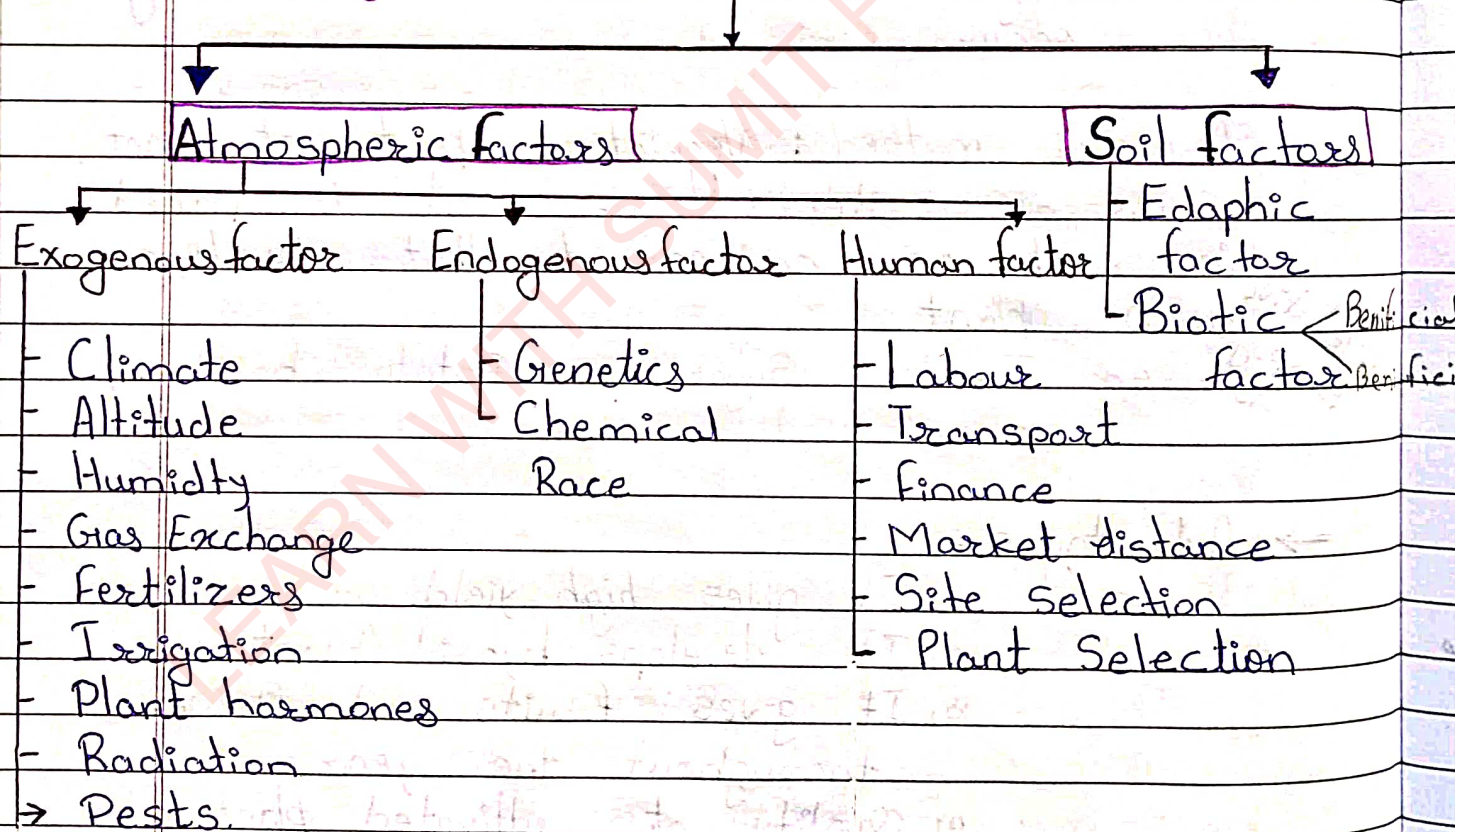 Atmospheric factors
Soil factors
Exogenous factor
Climate
Altitude
Humidty
Gas Exchange
Fertilizers
Irrigation
Plant harmones
Radiation
Pests.
Endogenous factor
Genetics
Chemical
Race
Human factor
Labour
Transport
Finance
Market distance
Site selection
Plant Selection
Edaphic
factor
Biotic
factor
Benificial
LEARN WITH SUMIT